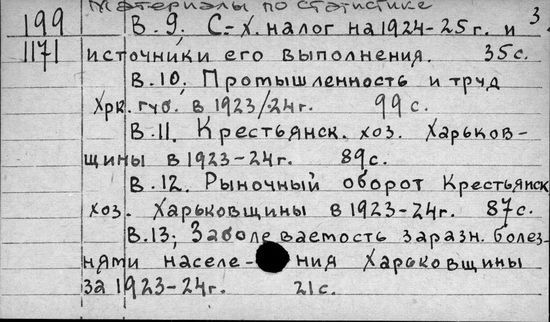 Материалы по статистике
199 В. 9; С-Х. налог на 1924-25г. и 3
1171 источники его выполнения. 35с.
В.10. Промышленность и труд
Хрк. губ. в 1923/24г. 99 с.
В.11. Крестьянск. хоз. Харьков-
щины в 1923-24г. 89с.
В.12. Рыночный оборот Крестьянск
хоз. Харьковщины в 1923-24г. 87с.
В.13; Заболеваемость заразн. болез-
нями населе- ния Харьковщины
за 1923-24г. 21с.